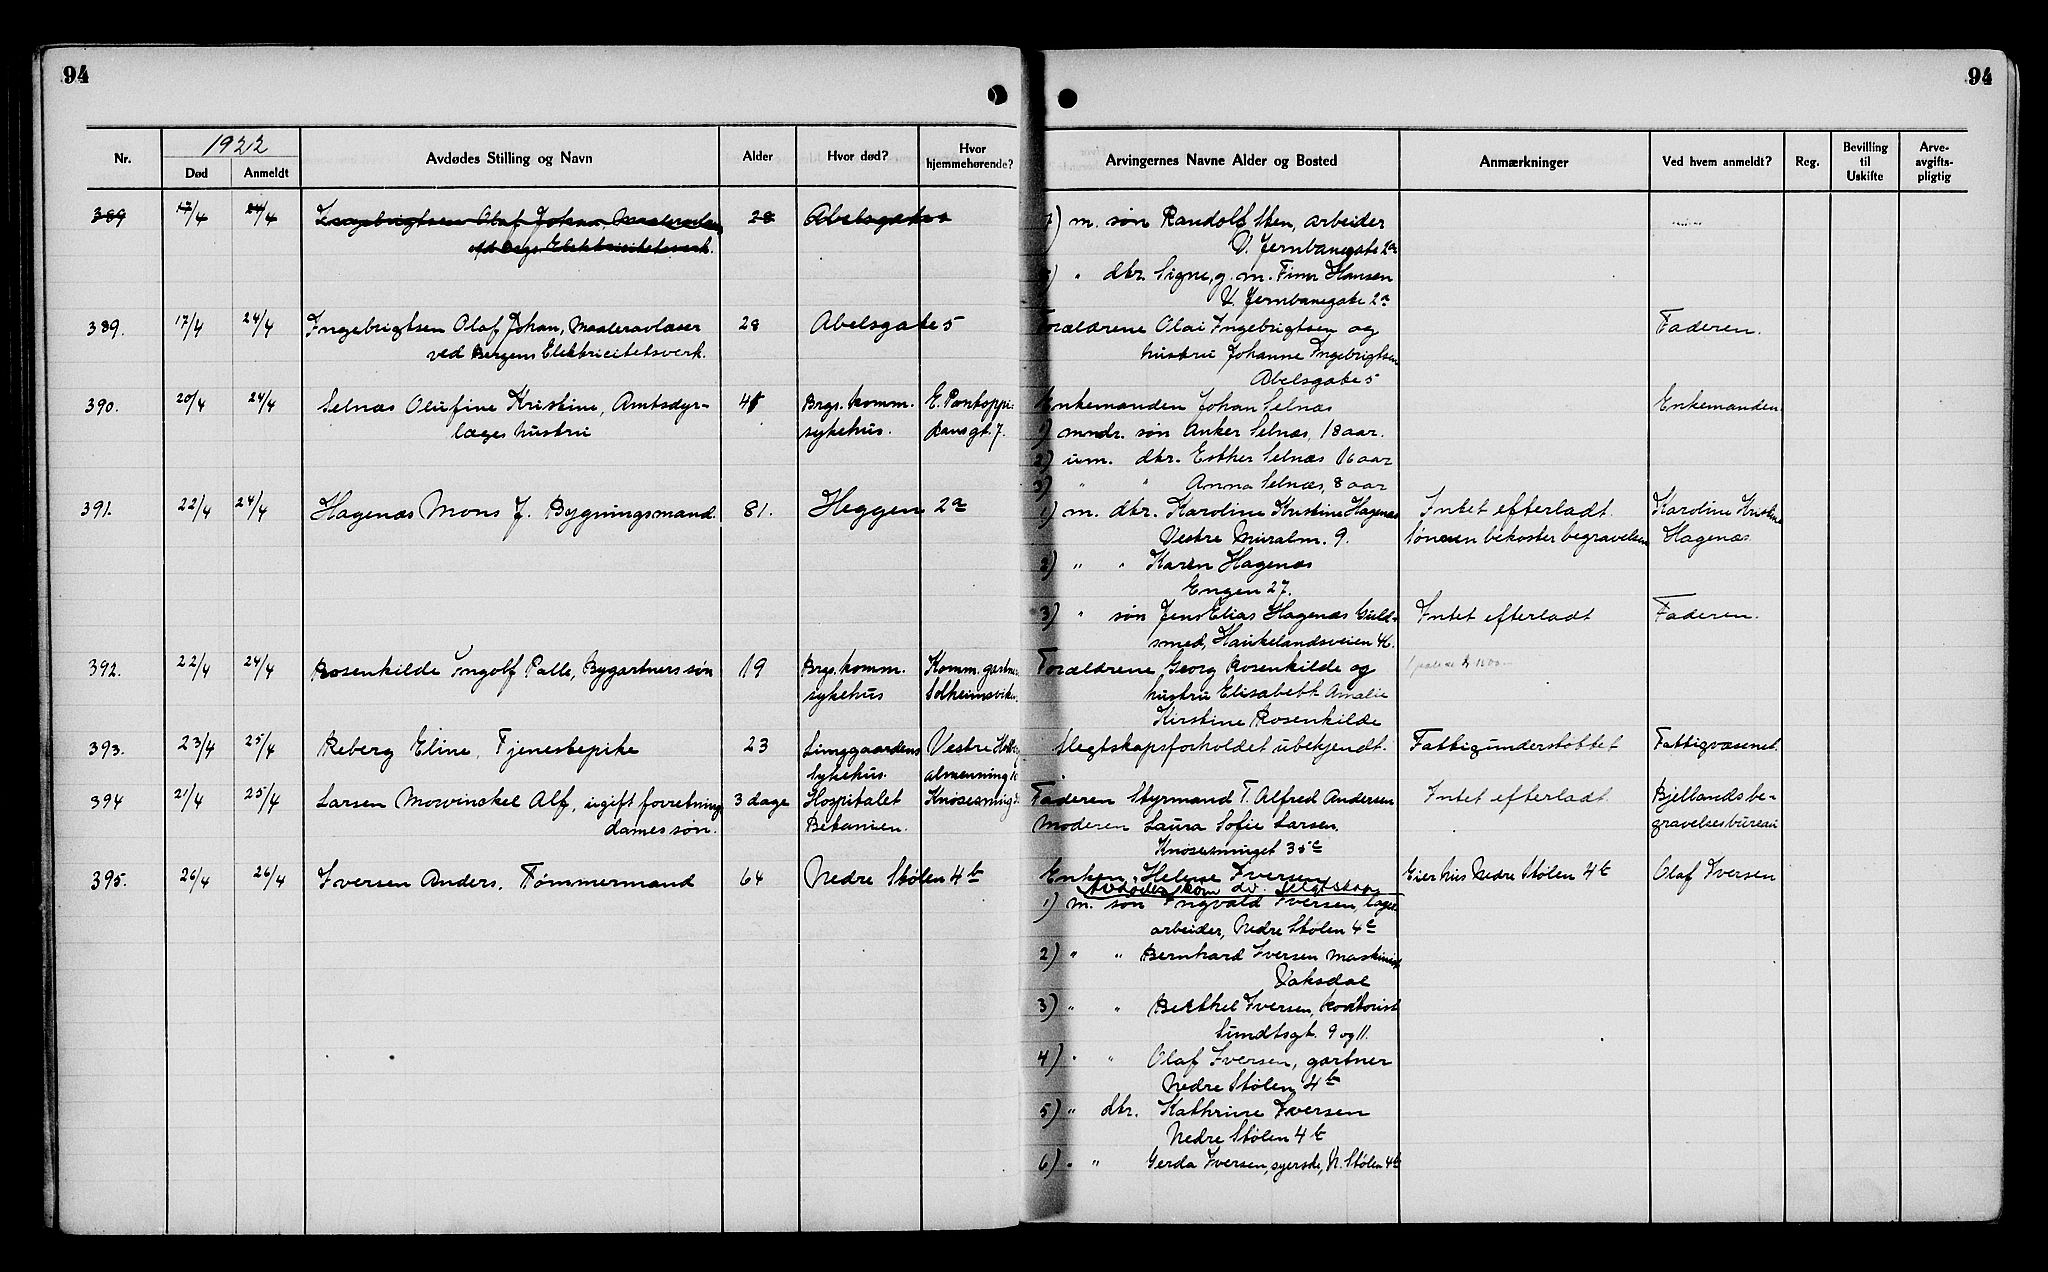 94
94
Nr.
1922
Død
Anmeldt
Avdødes Stilling og Navn
Alder
Hvor død?
Hvor hjemmehørende?
Arvingernes Navne Alder og Bosted
Anmærkninger
Ved hvem anmeldt?
Reg.
Bevilling til Uskifte
Arve-avgifts-pligtig
389 17/4 24/4 Ingebrigtsen Olaf Johan, Maaleravlæser 28 Abelsgate
ved Brgs. Elektricitetsverk.
m. søn Randolf Sten, arbeider
V. Jernbanegate 2a
" dtr. Signe, g. m. Finn Hansen
V. Jernbanegate 2a
389. 17/4 24/4 Ingebrigtsen Olaf Johan, Maaleravlæser 28 Abelsgate 5 Forældrene Olai Ingebrigtsen og Faderen.
ved Bergens Elektricitetsverk. hustru Johanne Ingebrigtsen
Abelsgate 5
390. 20/4 24/4 Selnæs Olufine Kristine, Amtsdyr- Brgs. komm. E. Pontoppi- Enkemanden Johan Selnæs Enkemanden
læges hustru sykehus. dansgt. 7. 1) mndr. søn Anker Selnæs, 18 aar.
2) um. dtr. Esther Selnæs 16 aar
3) " " Anna Selnæs, 8 aar
391. 22/4 24/4 Hagenæs Mons J. Bygningsmand. 81. Heggen 2a 1) m. dtr. Karoline Kristine Hagenæs Intet efterladt. Karoline Kristine
Vestre Muralm. 9. Sønnen bekoster begravelsen Hagenæs
2) " " Karen Hagenæs
Engen 27.
3) " søn Jens Elias Hagenæs Guld- Intet efterladt Faderen.
smed, Haukelandsveien 46.
392. 22/4 24/4 Rosenkilde Ingolf Palle, Bygartners søn 19 Brgs. komm. Komm. gartner Forældrene Georg Rosenkilde og
sykehus Solheimsvik. hustru Elisabeth Amalie
Kirstine Rosenkilde
393. 23/4 25/4 Reberg Eline, Tjenestepike 23 Lunggaardens Vestre Slegtskapsforholdet ubekjendt. Fattigunderstøttet Fattigvæsenet.
Sykehus. almenning
394 21/4 25/4 Larsen Mowinckel Alf, ugift forretnings 3 dage Hospitalet Knøsesmuget Faderen Styrmand T. Alfred Andersen Intet efterladt. Bjellands be-
dames søn. Betanien. Moderen Laura Sofie Larsen. gravelsesbureau
Knøsesmuget 35a
395. 26/4 26/4 Iversen Anders, Tømmermand 64 Nedre Stølen 4b Enken Helene Iversen Eier hus Nedre Stølen 4b Olaf Iversen
1) m. søn Ingvald Iversen, lager-
arbeider, Nedre Stølen 4c
2) " " Bernhard Iversen maskinist
Vaksdal
3) " " Berthel Iversen, kontorist
Sundtsgt. 9 og 11.
4) " " Olaf Iversen, gartner
Nedre Stølen 4b
5) " dtr. Kathrine Iversen
Nedre Stølen 4b
6) " " Gerda Iversen, syerske, N. Stølen 4b